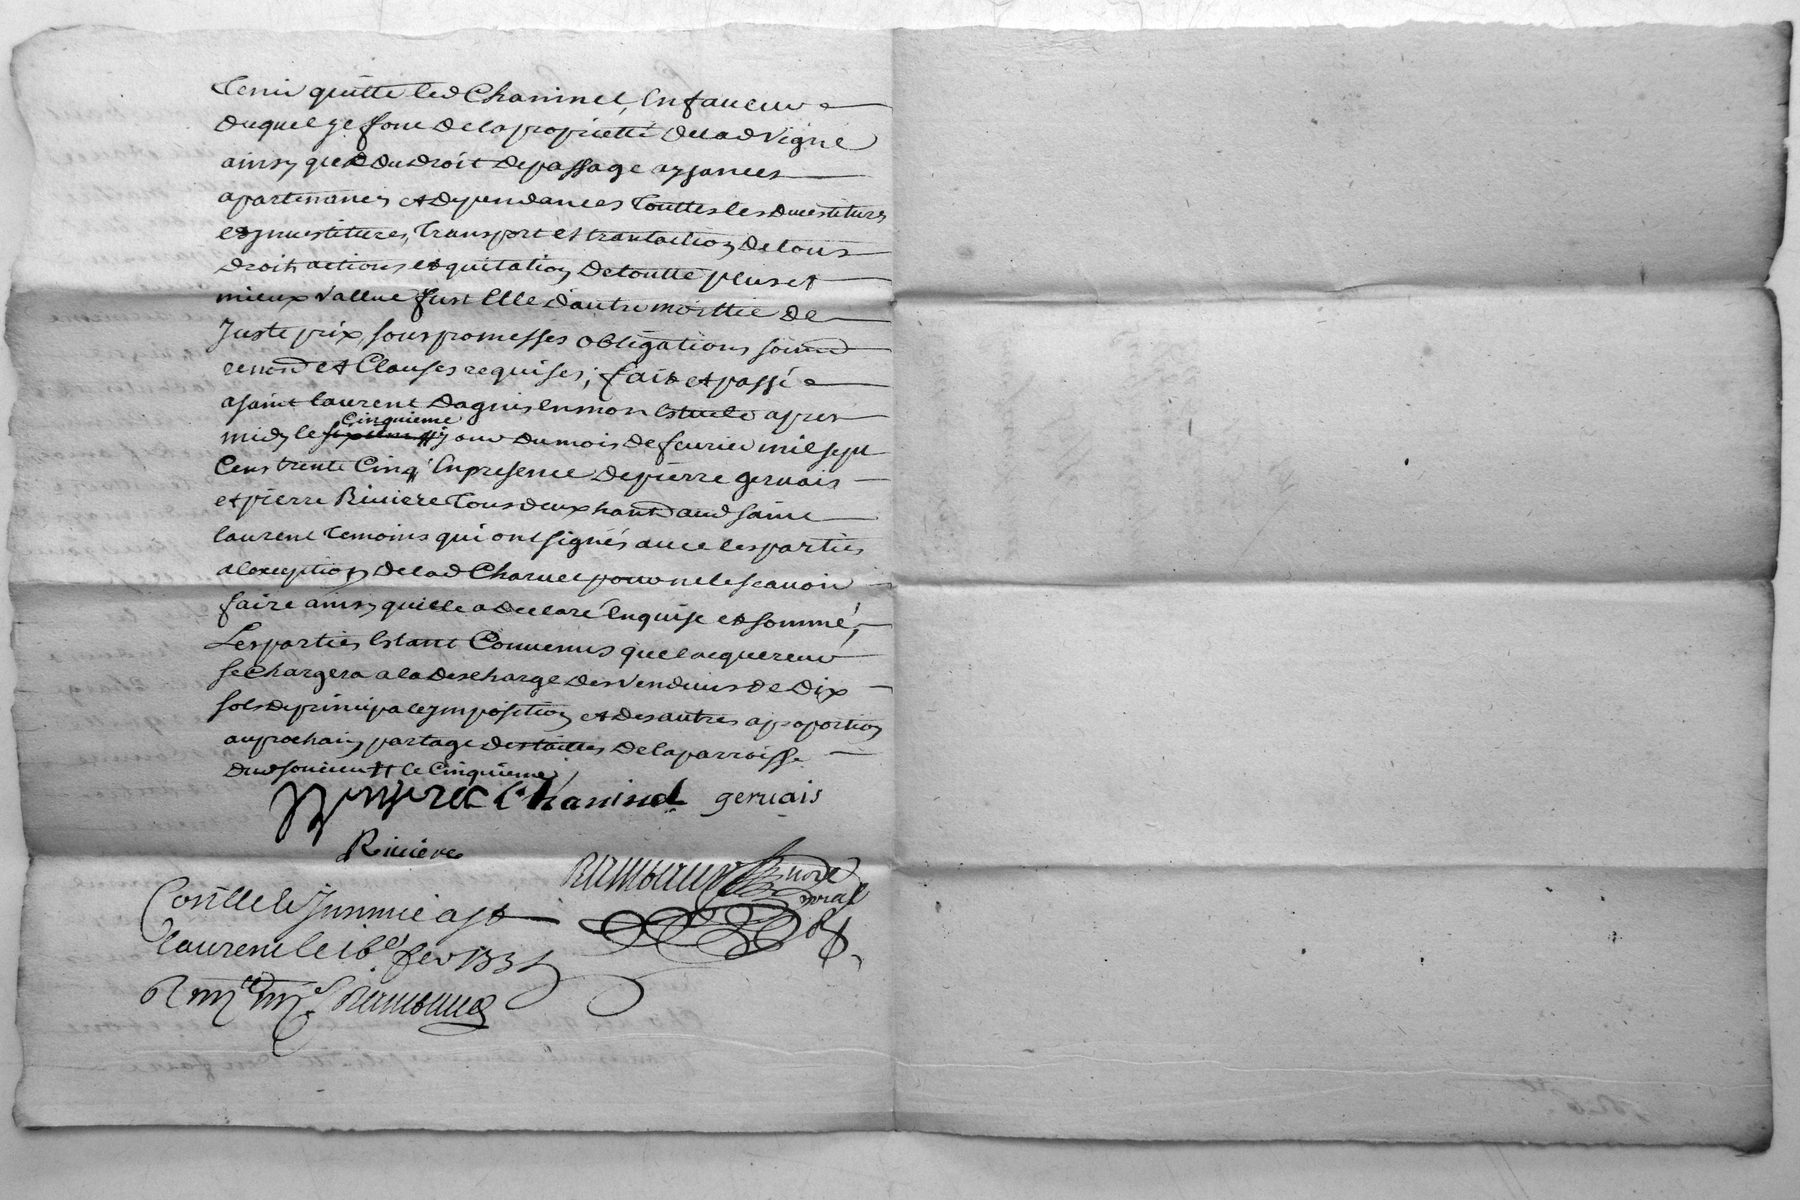 Tenir quitte led Chaninel, En faueur
duquel ge font de la proprietté de lad Vigne
ainsy que du droit de passage aysances
apartenances et dependances touttes les devestitures
et jnvestitures, transport et translation de tous
droits actions et quitation de toutte plus et
mieux vallue fust Elle d'autre moittié de
Juste prix, sous promesses obligations
renond et Clauses requises; fait et passé
a saint laurent Dagnis En mon Estude apres
Cinquieme
midy le jour du mois de feurier mil sept
Cens trente Cinq En presence de pierre geruais
et pierre Riuiere tous deux hantd aud saint
laurent temoins qui ont signés auec les parties
a lexeption de lad Charuet pour ne le scauoir
faire ainsy quelle a declaré Enquise et sommé;
Les parties Estant Conuenus que lacquereur
se Chargera a la descharge des vendeurs de Dix
sols de principale jmposition et des autres aproportion
au prochain partage des tailles de la parroisse
dud le Cinquieme
Chaninel geruais
Riuiere
Rambaud
Conllé le Jnsinué a St
laurent le 16e feu 1735
Rambaud